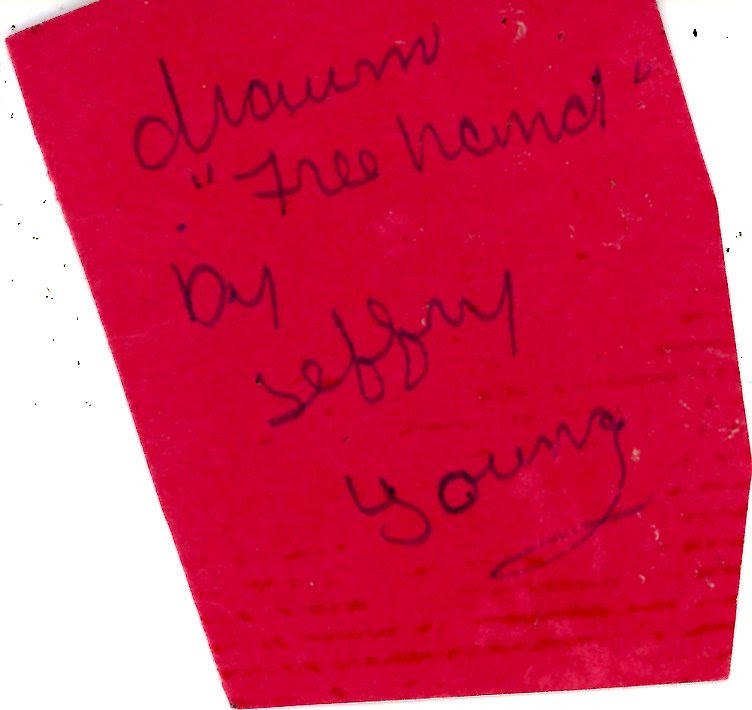 drawn
"Free hand"
by
Jeffry
Young